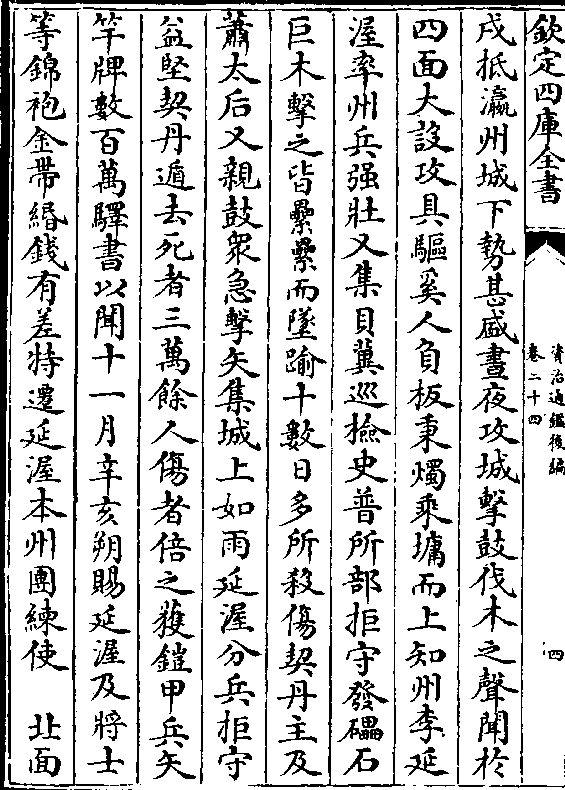 欽定四庫全書
資治通鑑後編
卷二十四
四
戌抵瀛州城下勢甚盛晝夜攻城擊鼓伐木之聲聞於
四面大設攻具驅奚人負板秉燭乘墉而上知州李延
渥率州兵强壯又集貝冀巡檢史普所部拒守發礧石
巨木擊之皆纍纍而墜踰十數日多所殺傷契丹主及
蕭太后又親鼓衆急擊矢集城上如雨延渥分兵拒守
益堅契丹遁去死者三萬餘人傷者倍之獲鎧甲兵矢
竿牌數百萬驛書以聞十一月辛亥朔賜延渥及將士
等錦袍金帶緡錢有差特遷延渥本州團練使　北面